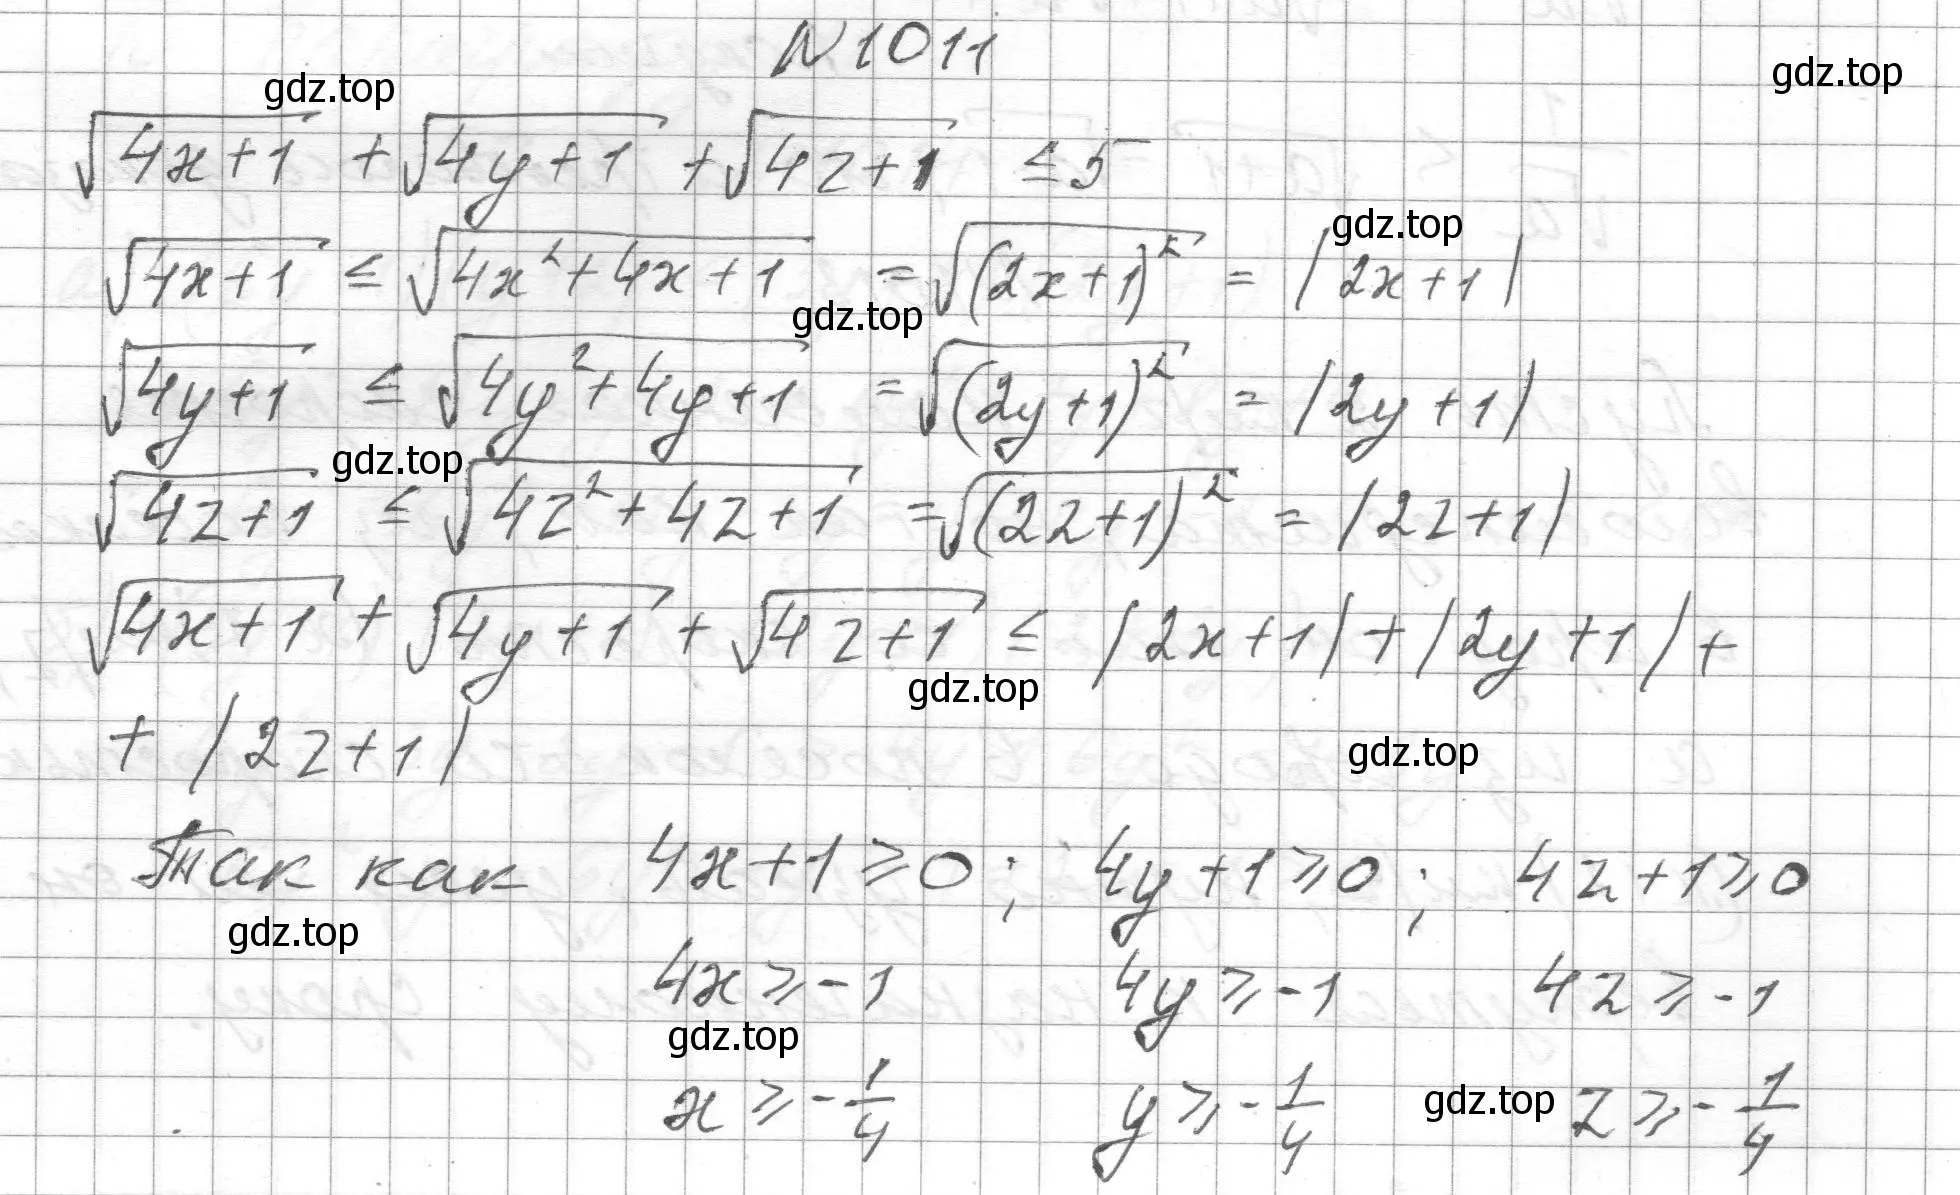 N1011
gdz.top
gdz.top
√(4x+1) + √(4y+1) + √(4z+1) ≤ 5
gdz.top
√(4x+1) ≤ √(4x²+4x+1) = √((2x+1)²) = |2x+1|
gdz.top
√(4y+1) ≤ √(4y²+4y+1) = √((2y+1)²) = |2y+1|
gdz.top
√(4z+1) ≤ √(4z²+4z+1) = √((2z+1)²) = |2z+1|
√(4x+1) + √(4y+1) + √(4z+1) ≤ |2x+1| + |2y+1| +
gdz.top
+ |2z+1|
gdz.top
Так как 4x+1 ≥ 0; 4y+1 ≥ 0; 4z+1 ≥ 0
gdz.top
4x ≥ -1 4y ≥ -1 4z ≥ -1
gdz.top
x ≥ -1/4 y ≥ -1/4 z ≥ -1/4
gdz.top